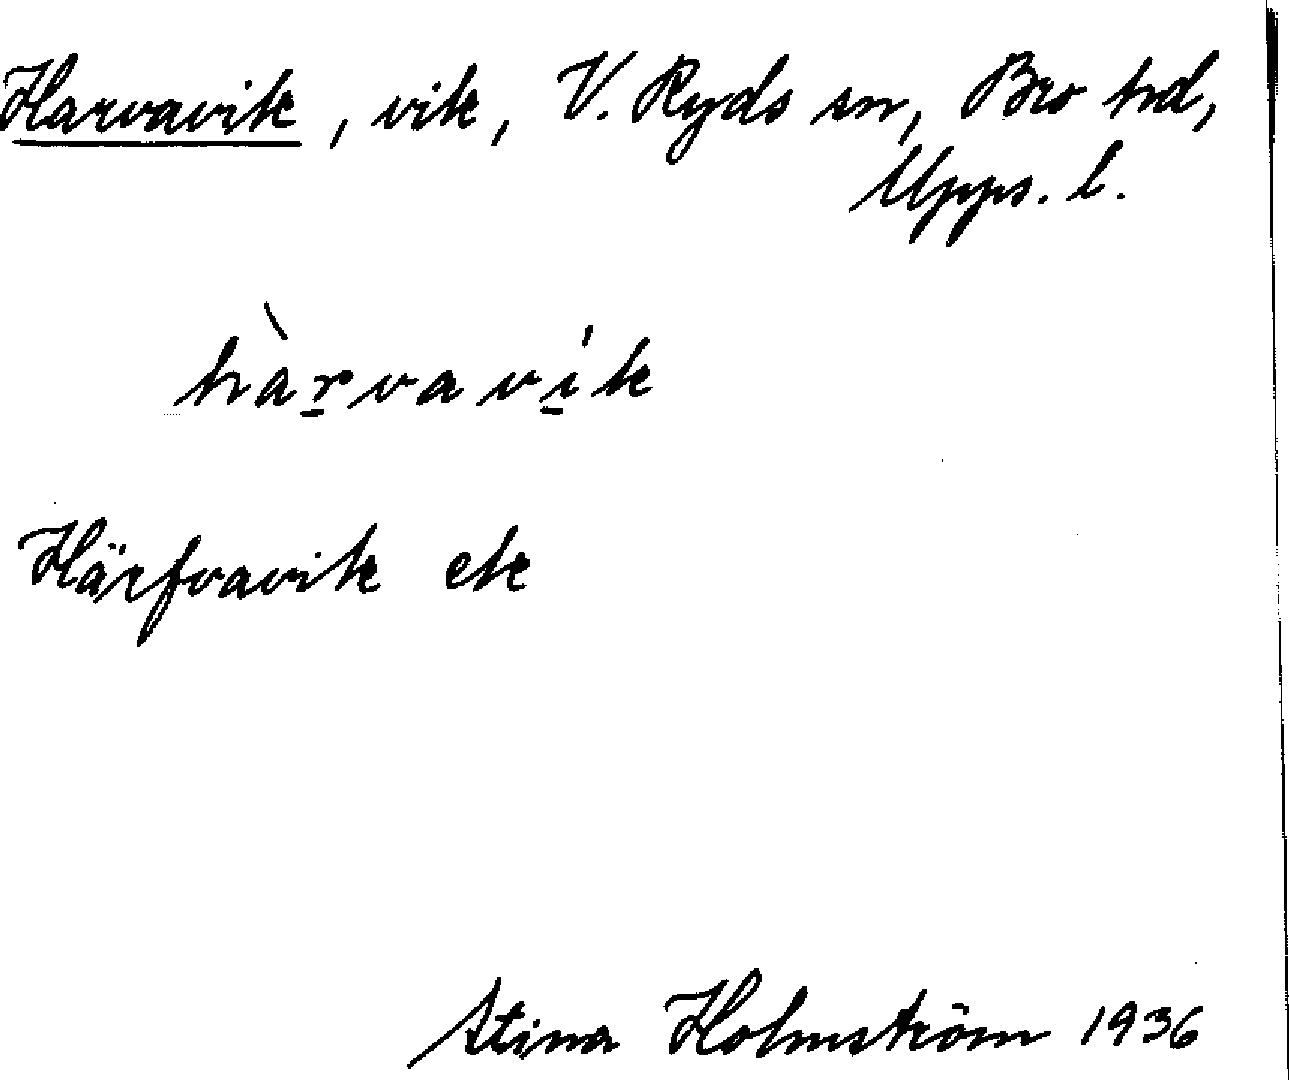 Harvavik, vik, V. Ryds sn, Bro hd,
Upps. l.
hàrvavík
Härfvavik ek
Stina Holmström 1936